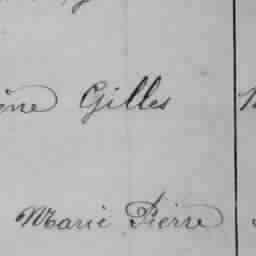 ène Gilles
Marie Pierre